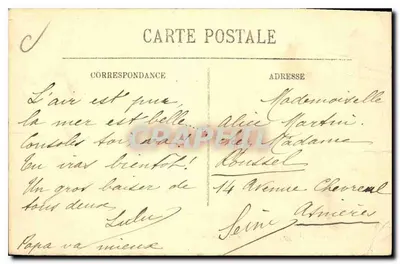 CARTE POSTALE
CORRESPONDANCE
L'air est pur
la mer est belle
Consoles toi va!
Tu iras bientôt!
Un gros baiser de
tous deux
Lulu
Papa va mieux
ADRESSE
Mademoiselle
Alice Martini
chez Madame
Roussel
14 Avenue Chevreul
Asnières
Seine